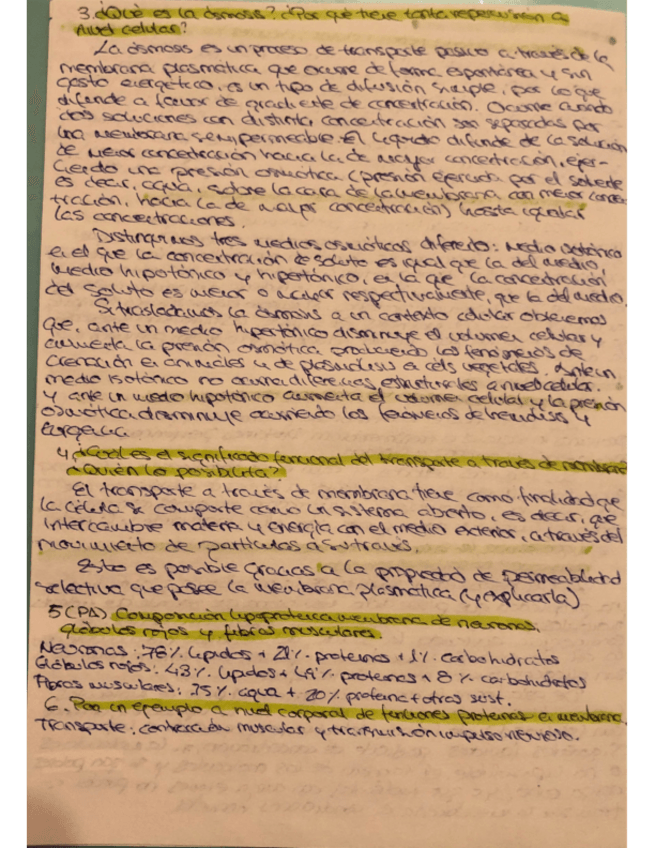 3. ¿Qué es la ósmosis? ¿Por qué tiene tanta repercusión a
nivel celular?
La ósmosis es un proceso de transporte pasivo a través de la
membrana plasmática que ocurre de forma espontánea y sin
gasto energético, es un tipo de difusión simple, por lo que
difunde a favor de gradiente de concentración. Ocurre cuando
dos soluciones con distinta concentración son separadas por
una membrana semipermeable. El líquido difunde de la solución
de menor concentración hacia la de mayor concentración, ejer-
ciendo una presión osmótica (presión ejercida por el solvente
es decir, agua, sobre la cara de la membrana con menor concen
tración, hacia la de mayor concentración) hasta igualar
las concentraciones.
Distinguimos tres medios osmóticos diferentes: Medio isotónico
en el que la concentración de soluto es igual que la del medio,
medio hipotónico y hipertónico, en la que la concentración
del soluto es menor o mayor respectivamente, que la del medio.
Si trasladamos la ósmosis a un contexto celular observemos
que, ante un medio hipertónico disminuye el volumen celular y
aumenta la presión osmótica produciendo los fenómenos de
crenación en animales y de plasmólisis en céls vegetales. Ante un
medio isotónico no ocurren diferencias estructurales a nivel celular.
y ante un medio hipotónico aumenta el volumen celular y la presión
osmótica disminuye ocurriendo los fenómenos de hemólisis y
turgencia
4. ¿Cuál es el significado funcional del transporte a través de membrana
¿Quién lo posibilita?
El transporte a través de membrana tiene como finalidad que
la célula se comporte como un sistema abierto, es decir, que
intercambie materia y energía con el medio exterior, a través del
movimiento de partículas a su través.
Esto es posible gracias a la propiedad de permeabilidad
selectiva que posee la membrana plasmática (y explicarla)
5 (PA) Composición lipoproteica membrana de neuronas,
glóbulos rojos y fibras musculares.
Neuronas: 78% lípidos + 21% proteínas + 1% carbohidratos
Glóbulos rojos: 43% lípidos + 49% proteínas + 8% carbohidratos
Fibras musculares: 75% agua + 20% proteína + otras sust.
6. Pon un ejemplo a nivel corporal de funciones proteínas en membrana.
Transporte, contracción muscular y transmisión impulso nervioso.